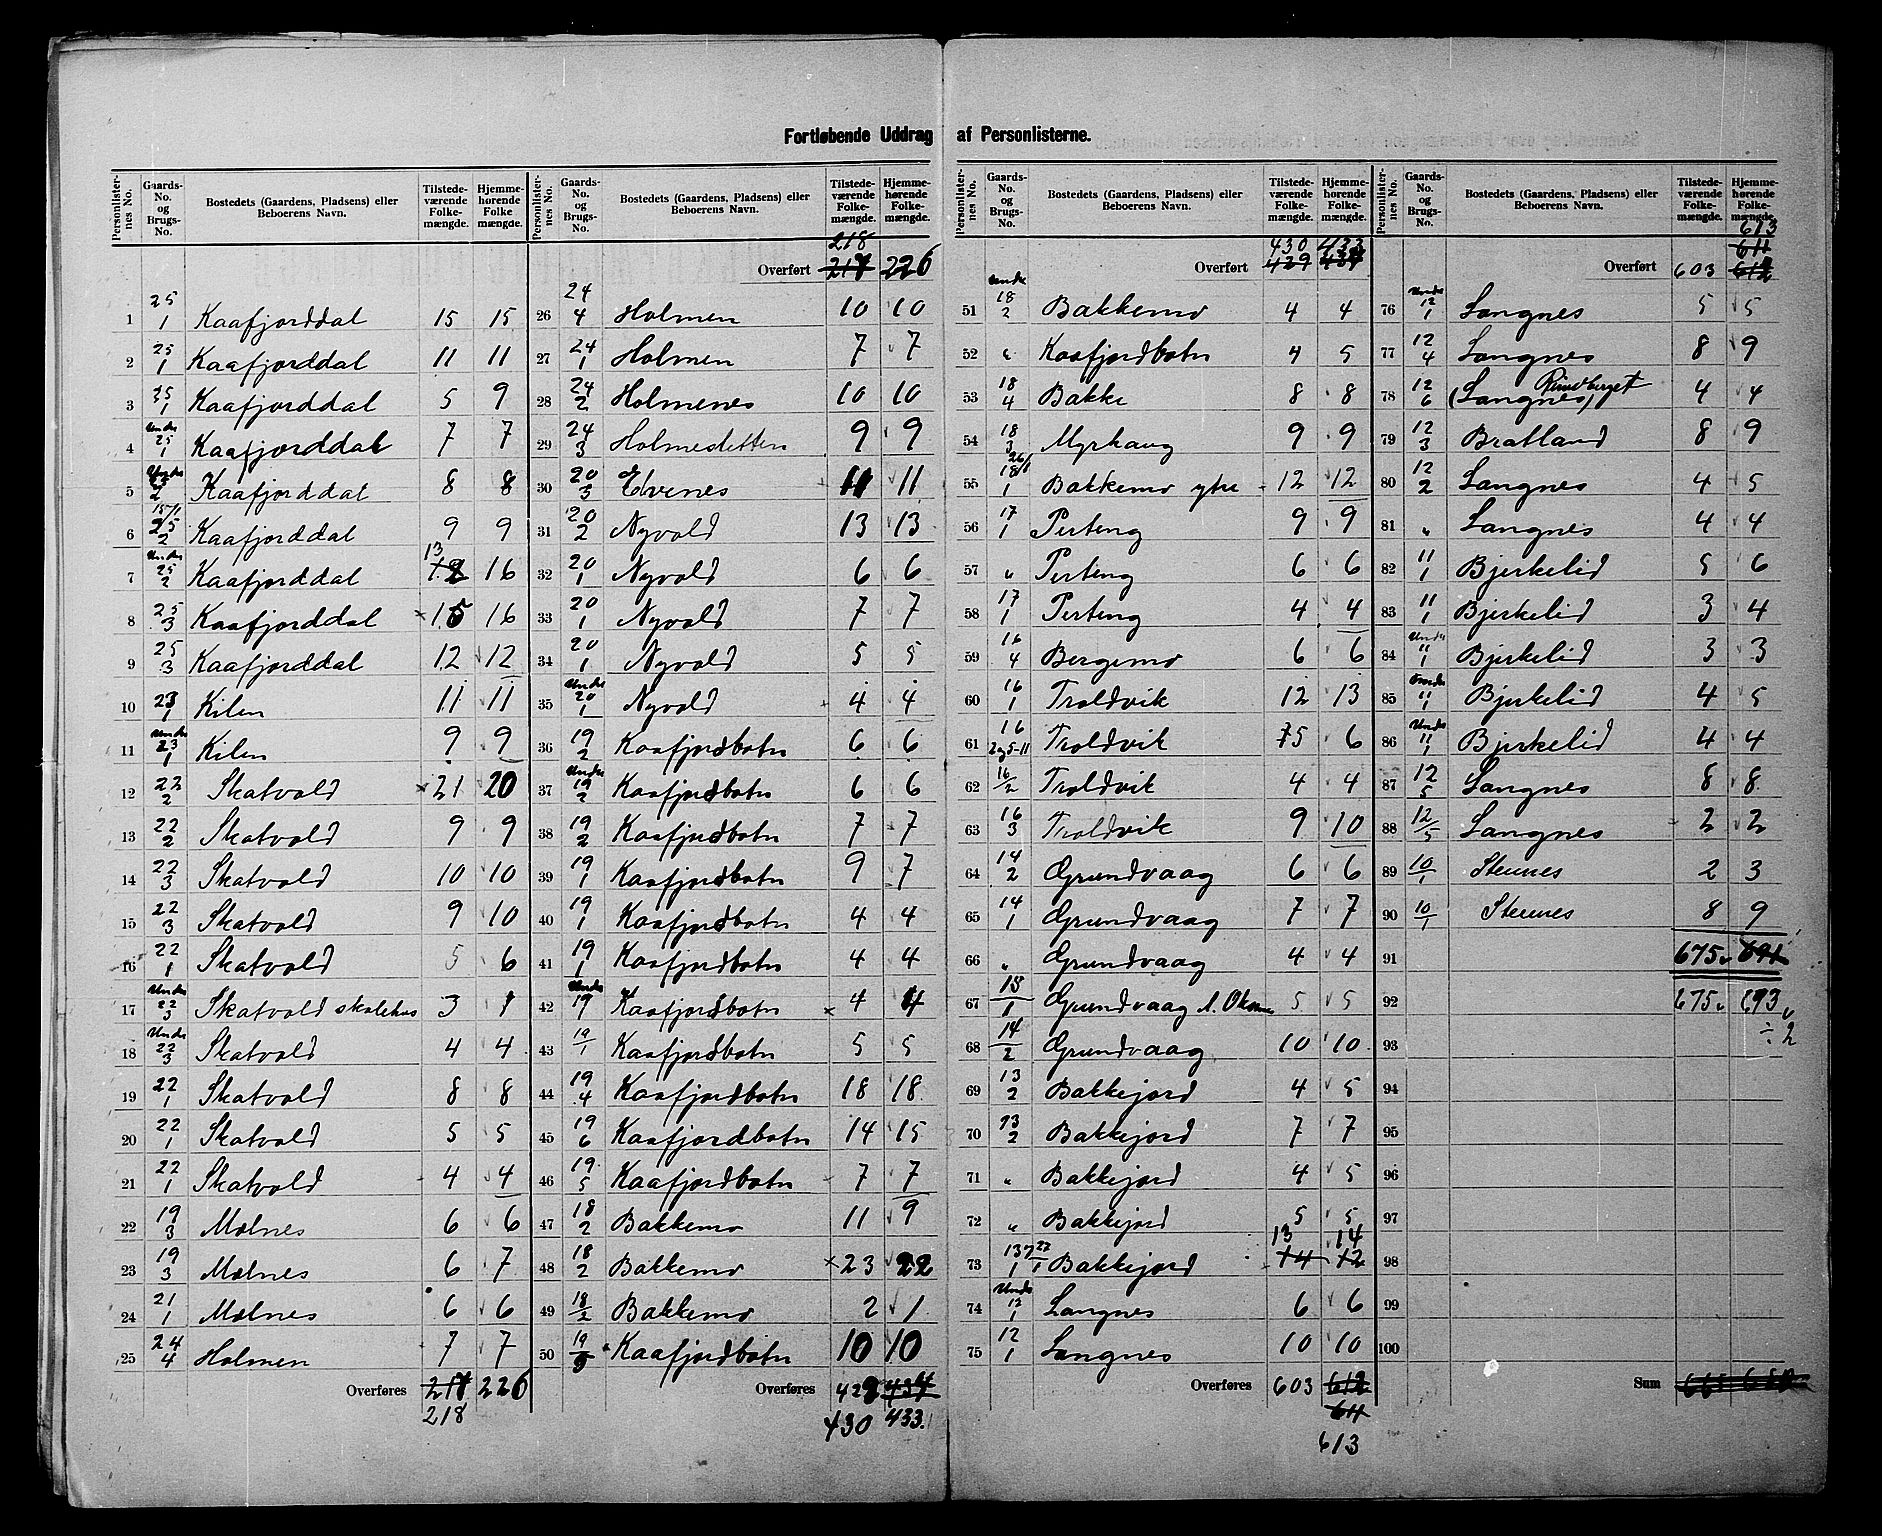 Fortløbende Uddrag af Personlisterne.
Personlister-nes No. | Gaards-No. og Brugs-No. | Bostedets (Gaardens, Pladsens) eller Beboerens Navn. | Tilstede-værende Folke-mængde. | Hjemme-hørende Folke-mængde.
1 25/1 Kaafjorddal 15 15
2 25/1 Kaafjorddal 11 11
3 25/1 Kaafjorddal 5 9
4 Under 25/1 Kaafjorddal 7 7
5 Under 2 Kaafjorddal 8 8
6 25/2 Kaafjorddal 9 9
7 Under 25/2 Kaafjorddal 13 16
8 25/3 Kaafjorddal × 15 16
9 25/3 Kaafjorddal 12 12
10 23/1 Kilen 11 11
11 Under 23/1 Kilen 9 9
12 22/2 Skatvold × 21 20
13 22/2 Skatvold 9 9
14 22/3 Skatvold 10 10
15 22/3 Skatvold 9 10
16 22/1 Skatvold 5 6
17 Under 22/3 Skatvold skolehus 3 1
18 Under 22/3 Skatvold 4 4
19 22/1 Skatvold 8 8
20 22/1 Skatvold 5 5
21 22/1 Skatvold 4 4
22 19/3 Mælnes 6 6
23 19/3 Mælnes 6 7
24 21/1 Mælnes 6 6
25 24/4 Holmen 7 7
Overføres 217 226
218
Personlister-nes No. | Gaards-No. og Brugs-No. | Bostedets (Gaardens, Pladsens) eller Beboerens Navn. | Tilstede-værende Folke-mængde. | Hjemme-hørende Folke-mængde.
218
Overført 217 226
26 24/4 Holmen 10 10
27 24/1 Holmen 7 7
28 24/2 Holmenes 10 10
29 24/3 Holmesletten 9 9
30 20/3 Elvenes 11 11
31 20/2 Nyvold 13 13
32 20/1 Nyvold 6 6
33 20/1 Nyvold 7 7
34 20/1 Nyvold 5 5
35 Under 20/1 Nyvold 4 4
36 19/2 Kaafjordbotn 6 6
37 Under 19/2 Kaafjordbotn 6 6
38 19/2 Kaafjordbotn 7 7
39 19/1 Kaafjordbotn 9 7
40 19/1 Kaafjordbotn 4 4
41 19/1 Kaafjordbotn 4 4
42 Under 19 Kaafjordbotn × 4 4
43 19/1 Kaafjordbotn 5 5
44 19/4 Kaafjordbotn 18 18
45 19/6 Kaafjordbotn 14 15
46 19/5 Kaafjordbotn 7 7
47 18/2 Bakkemo 11 9
48 18/2 Bakkemo × 23 22
49 18/2 Bakkemo 2 1
50 19/5 Kaafjordbotn 10 10
Overføres 429 434
430 433
Personlister-nes No. | Gaards-No. og Brugs-No. | Bostedets (Gaardens, Pladsens) eller Beboerens Navn. | Tilstede-værende Folke-mængde. | Hjemme-hørende Folke-mængde.
430 433
Overført 429 434
51 Under 18/2 Bakkemo 4 4
52 " Kaafjordbotn 4 5
53 18/4 Bakke 8 8
54 18/3 Myrhaug 9 9
55 26/1 18/1 Bakkemo ytre 12 12
56 17/1 Perteng 9 9
57 " Perteng 6 6
58 17/1 Perteng 4 4
59 16/4 Bergemo 6 6
60 16/1 Troldvik 12 13
61 16 2og5-11 Troldvik 5 6
62 16/2 Troldvik 4 4
63 16/3 Troldvik 9 10
64 14/2 Grundvaag 6 6
65 14/1 Grundvaag 7 7
66 " Grundvaag 4 4
67 15/1 Grundvaag 5 5
68 14/2 Grundvaag 10 10
69 13/2 Bakkejord 4 5
70 13/2 Bakkejord 7 7
71 " Bakkejord 4 5
72 " Bakkejord 5 5
13 14
73 13/1 Bakkejord 14 12
74 Under 12/1 Langnes 6 6
75 12/1 Langnes 10 10
Overføres 603 612
611
613
Personlister-nes No. | Gaards-No. og Brugs-No. | Bostedets (Gaardens, Pladsens) eller Beboerens Navn. | Tilstede-værende Folke-mængde. | Hjemme-hørende Folke-mængde.
613
611
Overført 603 612
76 Under 12/1 Langnes 5 5
77 12/4 Langnes 8 9
78 12/6 (Langnes) 4 4
79 12/3 Bratland 8 9
80 12/2 Langnes 4 5
81 " Langnes 4 4
82 11/1 Bjerkelid 5 6
83 11/1 Bjerkelid 3 4
84 Under 11/1 Bjerkelid 3 3
85 Under 11/1 Bjerkelid 4 5
86 Under 11/1 Bjerkelid 4 4
87 12/5 Langnes 8 8
88 12/5 Langnes 2 2
89 10/1 Stennes 2 3
90 10/1 Stennes 8 9
91 675 691
92 675 693
÷ 2
93
94
95
96
97
98
99
100
Sum